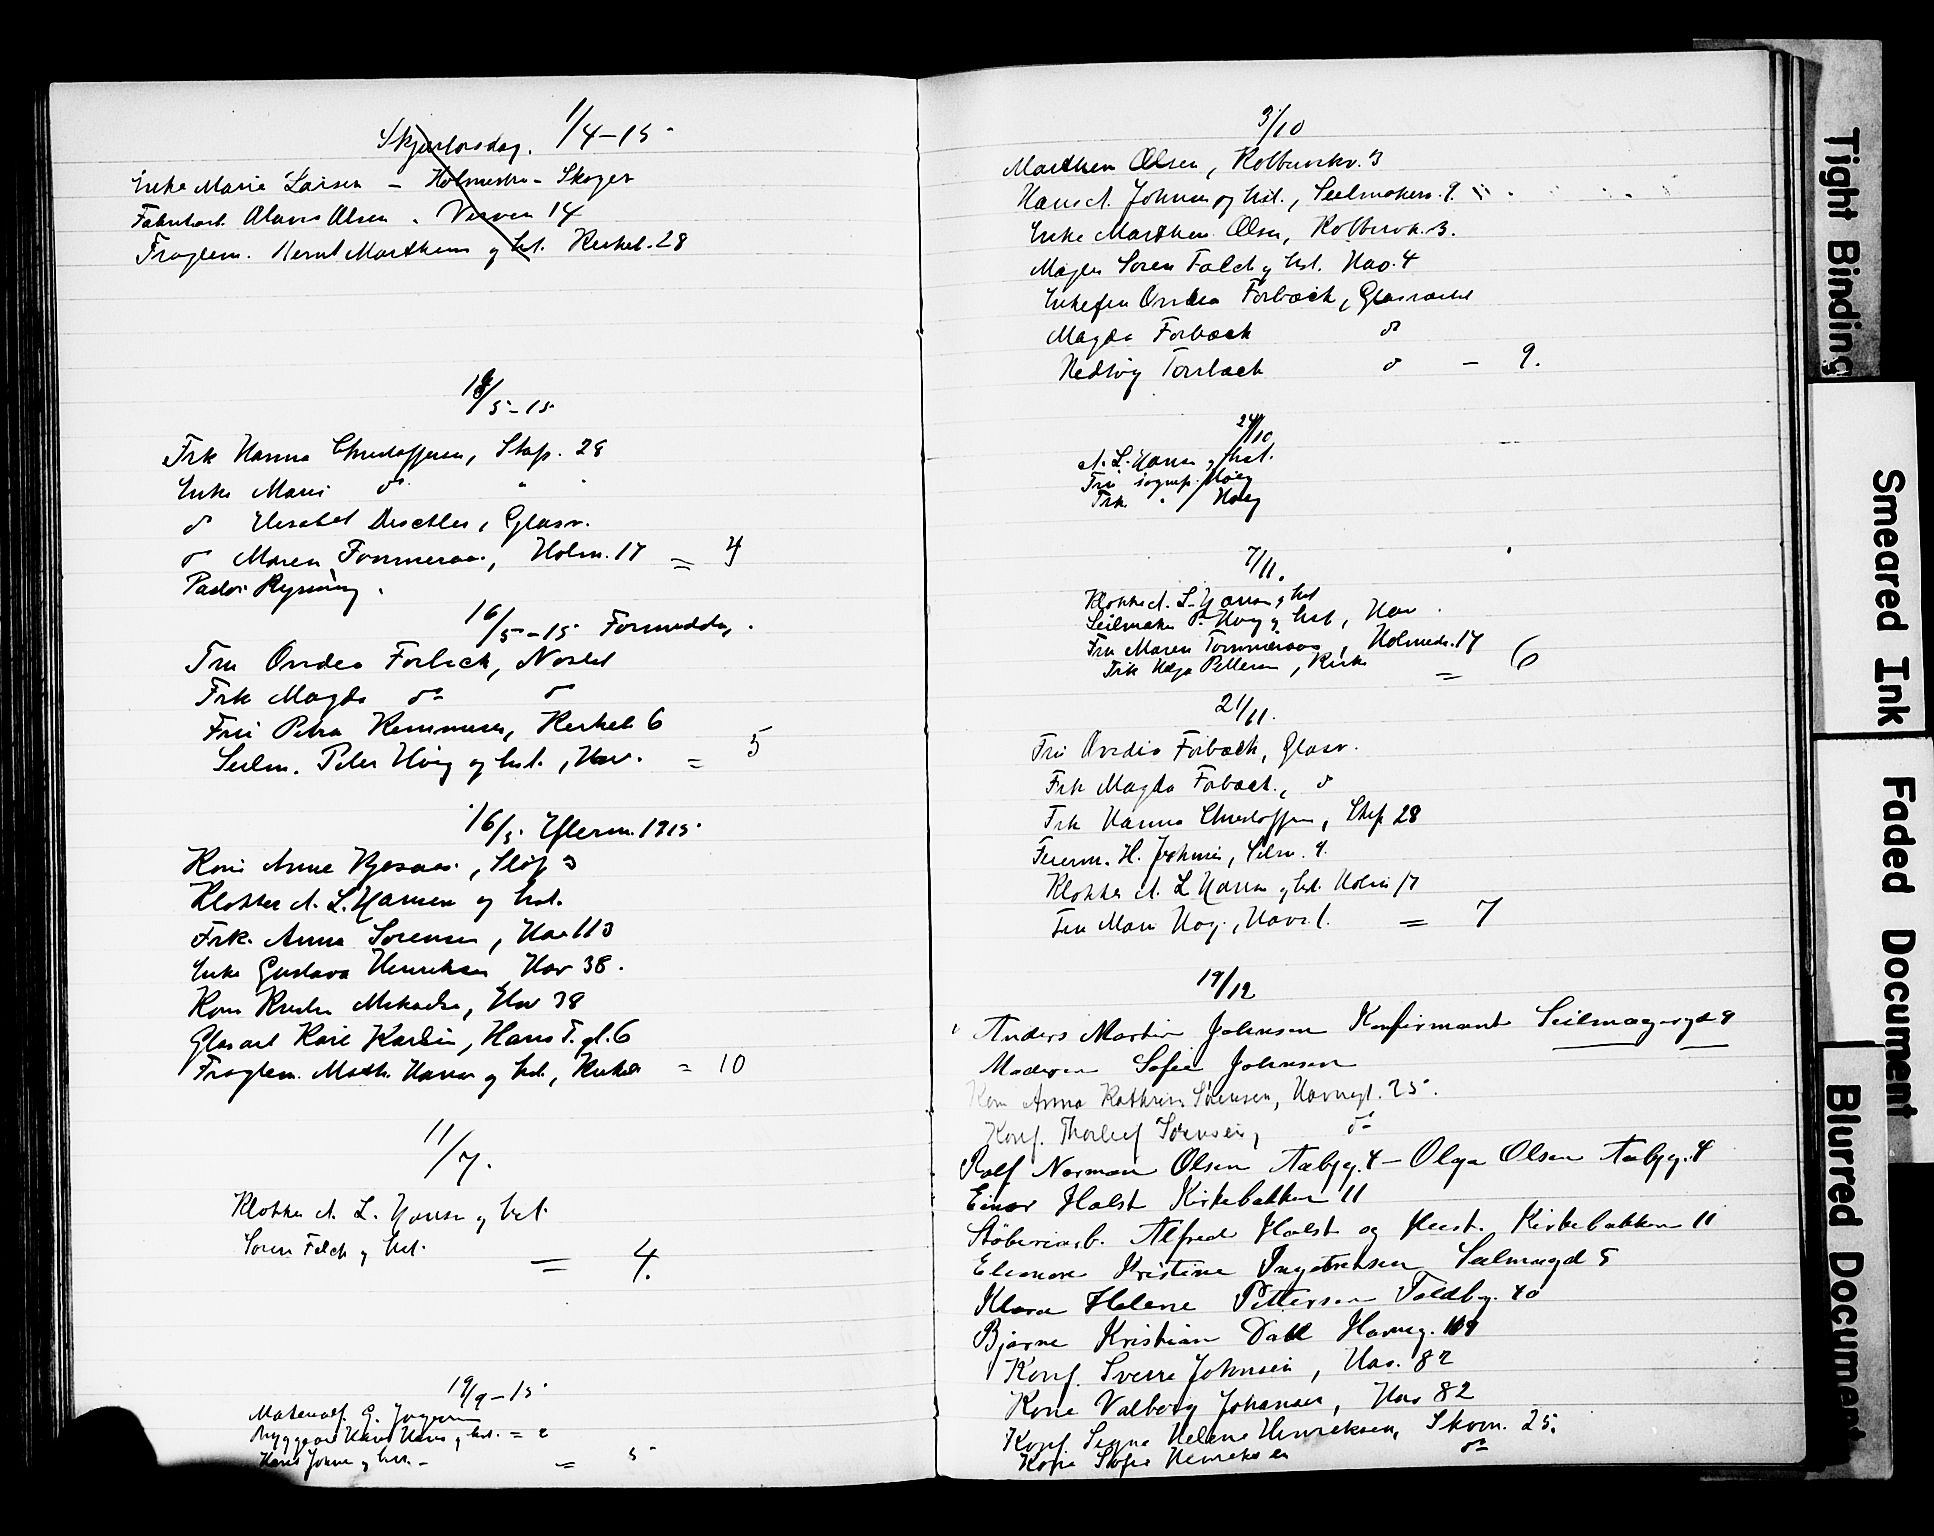 Skjærtorsdag. 1/4-15
Enke Marie Larsen - Holmestr. - Skoger
Fabrikarb. Olaves Olsen. Verven 14
Fraglem. Bernt Marthem og hst. Kirkeb. 28
16/5-15
Frk Hanna Christoffersen, Skap. 28
Enke Marie do " "
do Elisabet Drechler, Glasv.
do Maren Tommeraas, Holm. 17 = 4
Pastor Rynning.
16/5-15 Formiddag.
Fru Ovidea Forbech, Nostet
Frk Magda do do
Fru Petra Rasmussen, Kirkeb 6
Seilm. Peter Høeg og hst., Hav. = 5
16/5 Efterm. 1915
Kone Anne, Sløif 3
Klokker A. L. Hansen og hst.
Frk. Anna Sørensen, Hav 113
Enke Gustava Henriksen Hav 38.
Kone Mikaelse, Hav 38
Glasarb Karl Karlsen, Hans T. gt. 6
Fraglem. Math. Hansen og hst., Kirkeb = 10
11/7.
Klokker A. L. Hansen og hst.
Soren Falch og hst. = 4.
19/9-15
Materialf. G. Jørgensen
Byggearb Hans Hansen og hst. = 2
Hans Johnsen og hst. - = 5
3/10
Marthem Olsen, Kolbersrkv. 3
Hans A. Johnsen og hst., Seilmakers. 9.
Enke Marthem Olsen, Kolbersrk. 3.
Mægler Soren Falch og hst. Hav. 4
Enkefru Ovidea Forbech, Glasværket
Magda Forbech do
Hedvig Forbech do - 9.
24/10
A. L. Hansen og hst.
Fru sognep. Høeg
Frk. " Høeg
7/11.
Klokker A. L. Hansen og hst
Seilmaker P. Høeg og hst, Hav
Fru Maren Tommeraas, Holmestr. 17
Frk Helga Pettersen, Kirke = 6
21/11.
Fru Ovidia Forbech, Glasv.
Frk Magda Forbech., do
Frk Hanna Christoffersen, Skip 28
Feierm. H. Johnsen, Seilm. 9.
Klokker A. L Hansen og hst. Holm 17
Fru Marie Høeg, Havn 1. = 7
19/12
Anders Martin Johnsen Konfirmant Seilmagergd 9
Moderen Sofie Johnsen
Kone Anna Kathrine Sørensen, Havnegt. 25.
Konf. Thorleif Sørensen, do
Rolf Norman Olsen Aabyg. 4 - Olga Olsen Aabyg. 4
Einar Holst Kirkebakken 11
Støberiarb. Alfred Holst og Hust. Kirkebakken 11
Elenore Kristine Ingebretsen Seilmagd 5
Klara Helene Pettersen Toldbg. 40
Bjarne Kristian Dahl Havneg. 109
Konf. Sverre Johnsen, Hav. 82
Kone Valborg Johansen, Hav 82
Konf. Signe Helene Henriksen, Skom. 25.
Kone Sofie Henriksen do
Tight Binding
Smeared Ink
Faded Document
Blurred Document